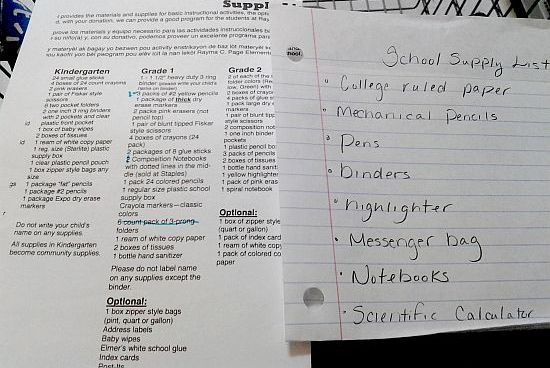 Suppl
provides the materials and supplies for basic instructional activities, the
d, with your donation, we can provide a good program for the students at
Kindergarten
24 small glue sticks
4 boxes of 24 count crayons
2 pink erasers
1 pair of Fiskar style
scissors
6 two pocket folders
2 one inch 3 ring binders
with 2 pockets and clear
plastic front pocket
1 box of baby wipes
2 boxes of tissues
1 ream of white copy paper
1 reg. size (Sterlite) plastic
supply box
1 clear plastic pencil pouch
1 box zipper style bags any
size
1 package "fat" pencils
1 package #2 pencils
1 package Expo dry erase
markers
Do not write your child's
name on any supplies.
All supplies in Kindergarten
become community supplies.
Grade 1
1 - 1 1/2" heavy duty 3 ring
binder (please write your child's
name on binder)
3 packs of #2 yellow pencils
1 package of thick dry
erase markers
2 packs pink erasers (not
pencil top)
1 pair of blunt tipped Fiskar
style scissors
4 boxes of crayons (24
pack)
2 packages of 8 glue sticks
2 Composition Notebooks
with dotted lines in the mid-
dle (sold at Staples)
1 pack 24 colored pencils
1 regular size plastic school
supply box
Crayola markers—classic
colors
6 count pack of 3-prong
folders
1 ream of white copy paper
2 boxes of tissues
1 bottle hand sanitizer
Please do not label name
on any supplies except the
binder.
Optional:
1 box zipper style bags
(pint, quart or gallon)
Address labels
Baby wipes
Elmer's white school glue
Index cards
Post-Its
Grade 2
2 of each of the
folder colors
low, Green) with
2 boxes of crayo
4 packs of glue s
1 pack large dry e
markers
1 pair of blunt tipp
style scissors
2 composition not
1 one inch binder
pockets
1 plastic pencil bo
3 packs of pencils
2 boxes of tissues
1 bottle hand sanit
1 yellow highlighte
1 pack of pink eras
1 spiral notebook
Optional:
1 box of zipper style
(quart or gallon)
1 pack of index card
1 ream of white copy
1 pack of colored co
paper
School Supply List
• College ruled paper
• Mechanical Pencils
• Pens
• binders
• highlighter
• Messenger bag
• Notebooks
• Scientific Calculator